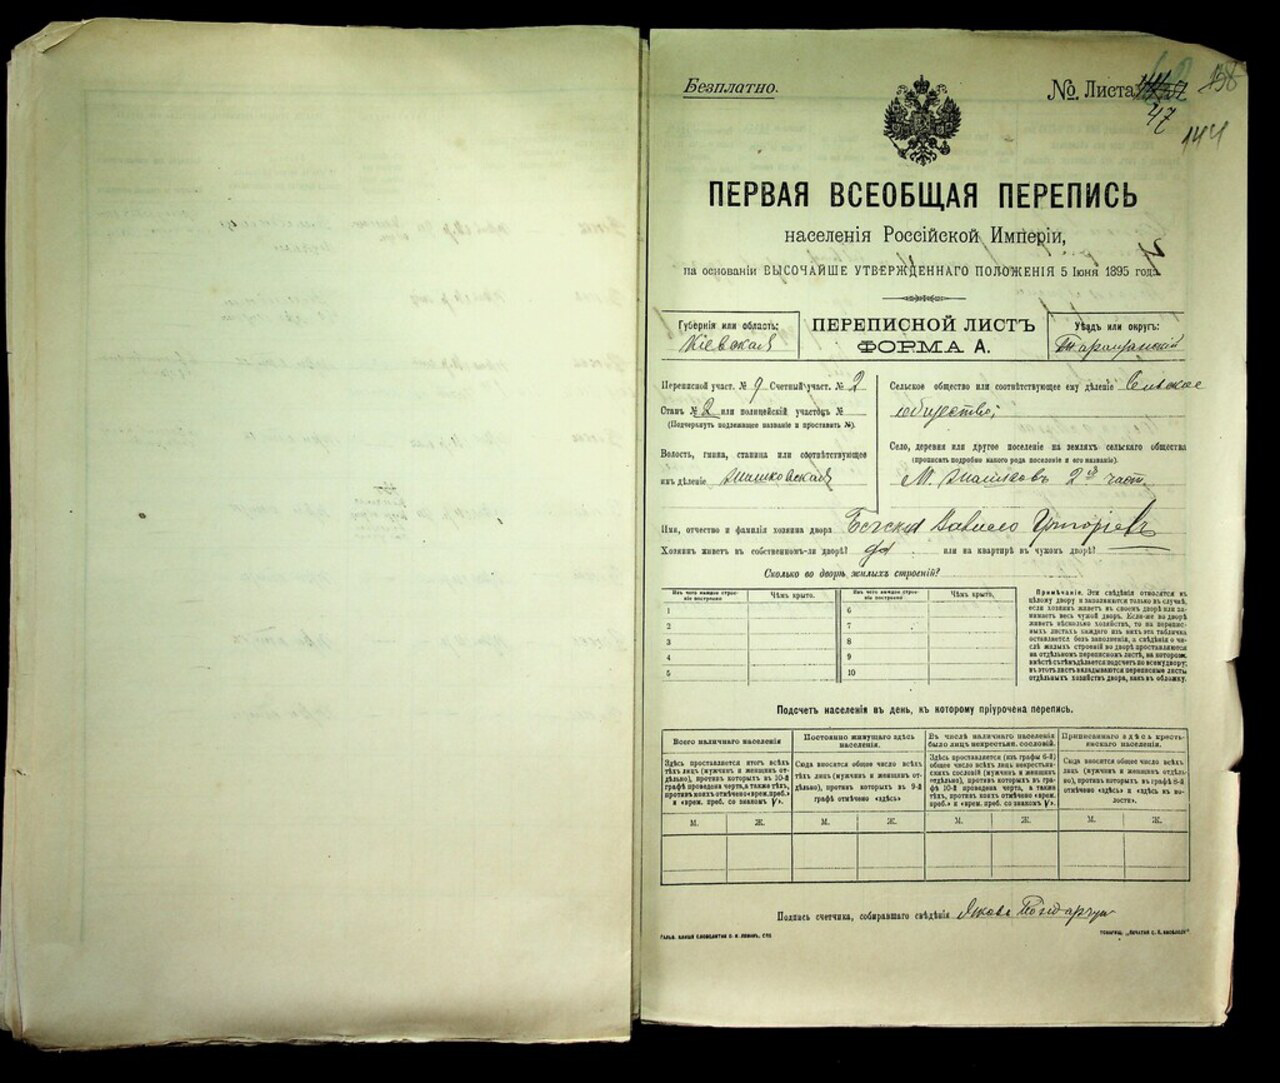 Безплатно.
№ Листа
47
144
ПЕРВАЯ ВСЕОБЩАЯ ПЕРЕПИСЬ
населенія Россійской Имперіи,
на основаніи ВЫСОЧАЙШЕ УТВЕРЖДЕННАГО ПОЛОЖЕНІЯ 5 Іюня 1895 года.
Губернія или область:
Кіевская
ПЕРЕПИСНОЙ ЛИСТЪ
ФОРМА А.
Уѣздъ или округъ:
Таращанскій
Переписной участ. № 9 Счетный участ. № 2
Станъ № 2 или полицейскій участокъ №
(Подчеркнуть подлежащее названіе и проставить №).
Волость, гмина, станица или соотвѣтствующее
имъ дѣленіе
Сельское общество или соотвѣтствующее ему дѣленіе Сельское
общество;
Село, деревня или другое поселеніе на земляхъ сельскаго общества
(прописать подробно какого рода поселеніе и его названіе).
М. 2й част.
Имя, отчество и фамилія хозяина двора Григоріевъ
Хозяинъ живетъ въ собственномъ-ли дворѣ? да или на квартирѣ въ чужомъ дворѣ?
Сколько во дворѣ жилыхъ строеній?
Изъ чего каждое строеніе построено
Чѣмъ крыто.
Изъ чего каждое строеніе построено
Чѣмъ крыто.
1 6
2 7
3 8
4 9
5 10
Примѣчаніе. Эти свѣдѣнія относятся къ
цѣлому двору и заполняются только въ случаѣ,
если хозяинъ живетъ въ своемъ дворѣ или за-
нимаетъ весь чужой дворъ. Если-же во дворѣ
живетъ нѣсколько хозяйствъ, то на перепис-
ныхъ листахъ каждаго изъ нихъ эта табличка
оставляется безъ заполненія, а свѣдѣнія о чи-
слѣ жилыхъ строеній во дворѣ проставляются
на отдѣльномъ переписномъ листѣ, на которомъ
вмѣстѣ съ тѣмъ дѣлается подсчетъ по всему двору;
въ этотъ листъ вкладываются переписные листы
отдѣльныхъ хозяйствъ двора, какъ въ обложку.
Подсчетъ населенія въ день, къ которому пріурочена перепись.
Всего наличнаго населенія
Здѣсь проставляется итогъ всѣхъ
тѣхъ лицъ (мужчинъ и женщинъ от-
дѣльно), противъ которыхъ въ 10-й
графѣ проведена черта, а также тѣхъ,
противъ коихъ отмѣчено «врем. преб.»
и «врем. преб. со знакомъ V».
Постоянно живущаго здѣсь
населенія.
Сюда вносится общее число всѣхъ
тѣхъ лицъ (мужчинъ и женщинъ от-
дѣльно), противъ которыхъ въ 9-й
графѣ отмѣчено «здѣсь»
Въ числѣ наличнаго населенія
было лицъ некрестьян. сословій.
Здѣсь проставляется (изъ графы 6-й)
общее число всѣхъ лицъ некрестьян-
скихъ сословій (мужчинъ и женщинъ
отдѣльно), противъ которыхъ въ гра-
фѣ 10-й проведена черта, а также
тѣхъ, противъ коихъ отмѣчено «врем.
преб.» и «врем. преб. со знакомъ V».
Приписаннаго здѣсь кресть-
янскаго населенія.
Сюда вносится общее число всѣхъ
лицъ (мужчинъ и женщинъ отдѣль-
но), противъ которыхъ въ графѣ 8-й
отмѣчено «здѣсь» и «здѣсь въ во-
лости».
М. Ж. М. Ж. М. Ж. М. Ж.
Подпись счетчика, собиравшаго свѣдѣнія